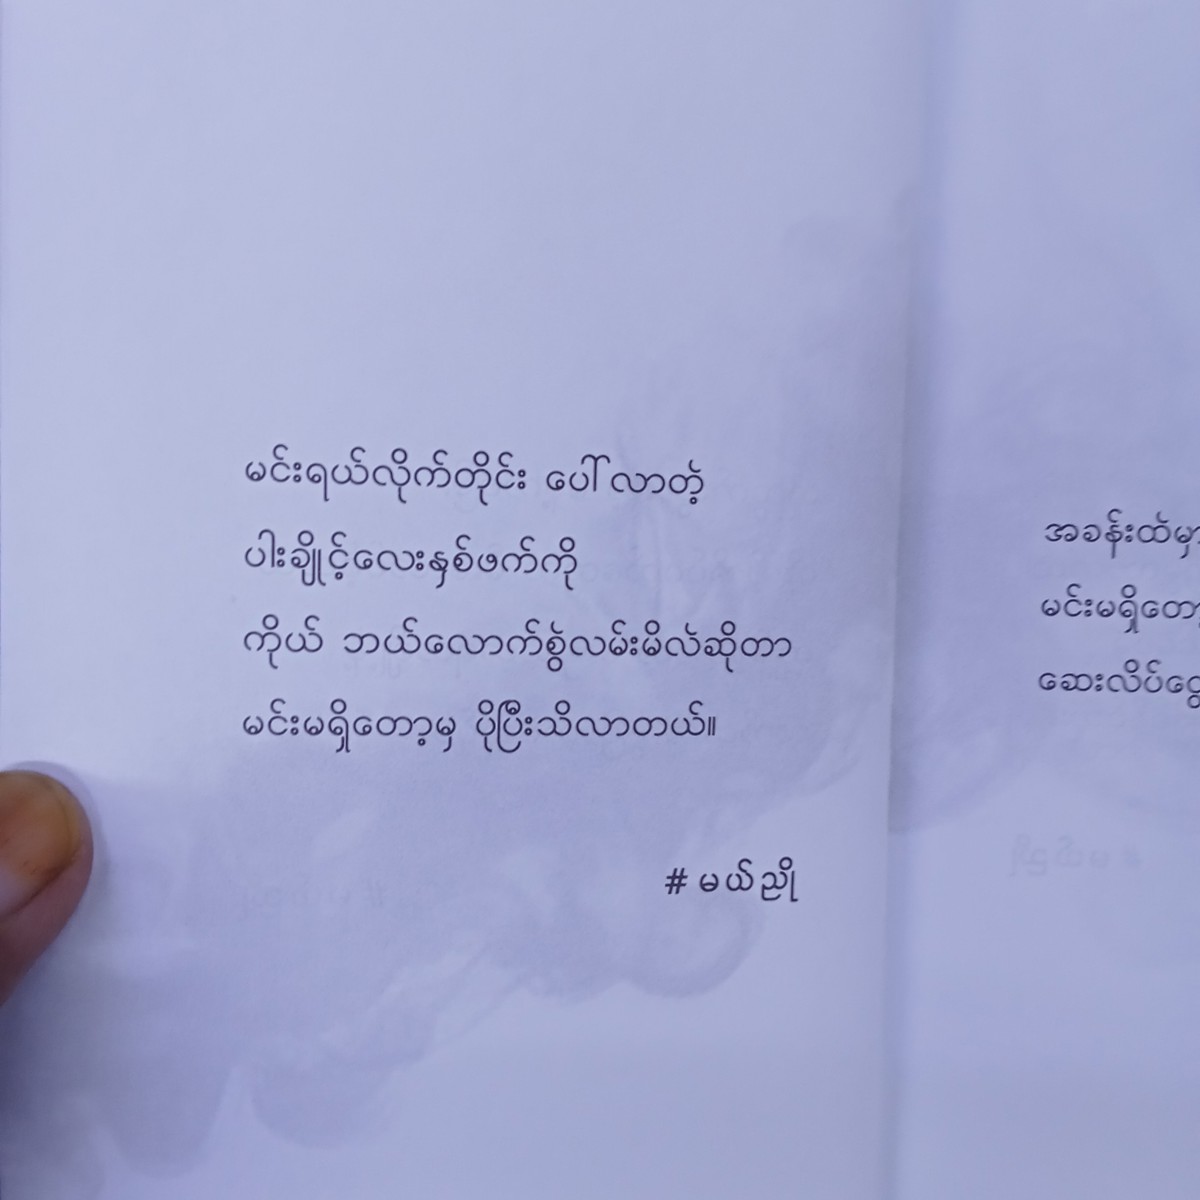 မင်းရယ်လိုက်တိုင်း ပေါ်လာတဲ့
ပါးချိုင့်လေးနှစ်ဖက်ကို
ကိုယ် ဘယ်လောက်စွဲလမ်းမိလဲဆိုတာ
မင်းမရှိတော့မှ ပိုပြီးသိလာတယ်။
# မယ်ညို
အခန်းထဲမှာ
မင်းမရှိတော့
ဆေးလိပ်ငွေ